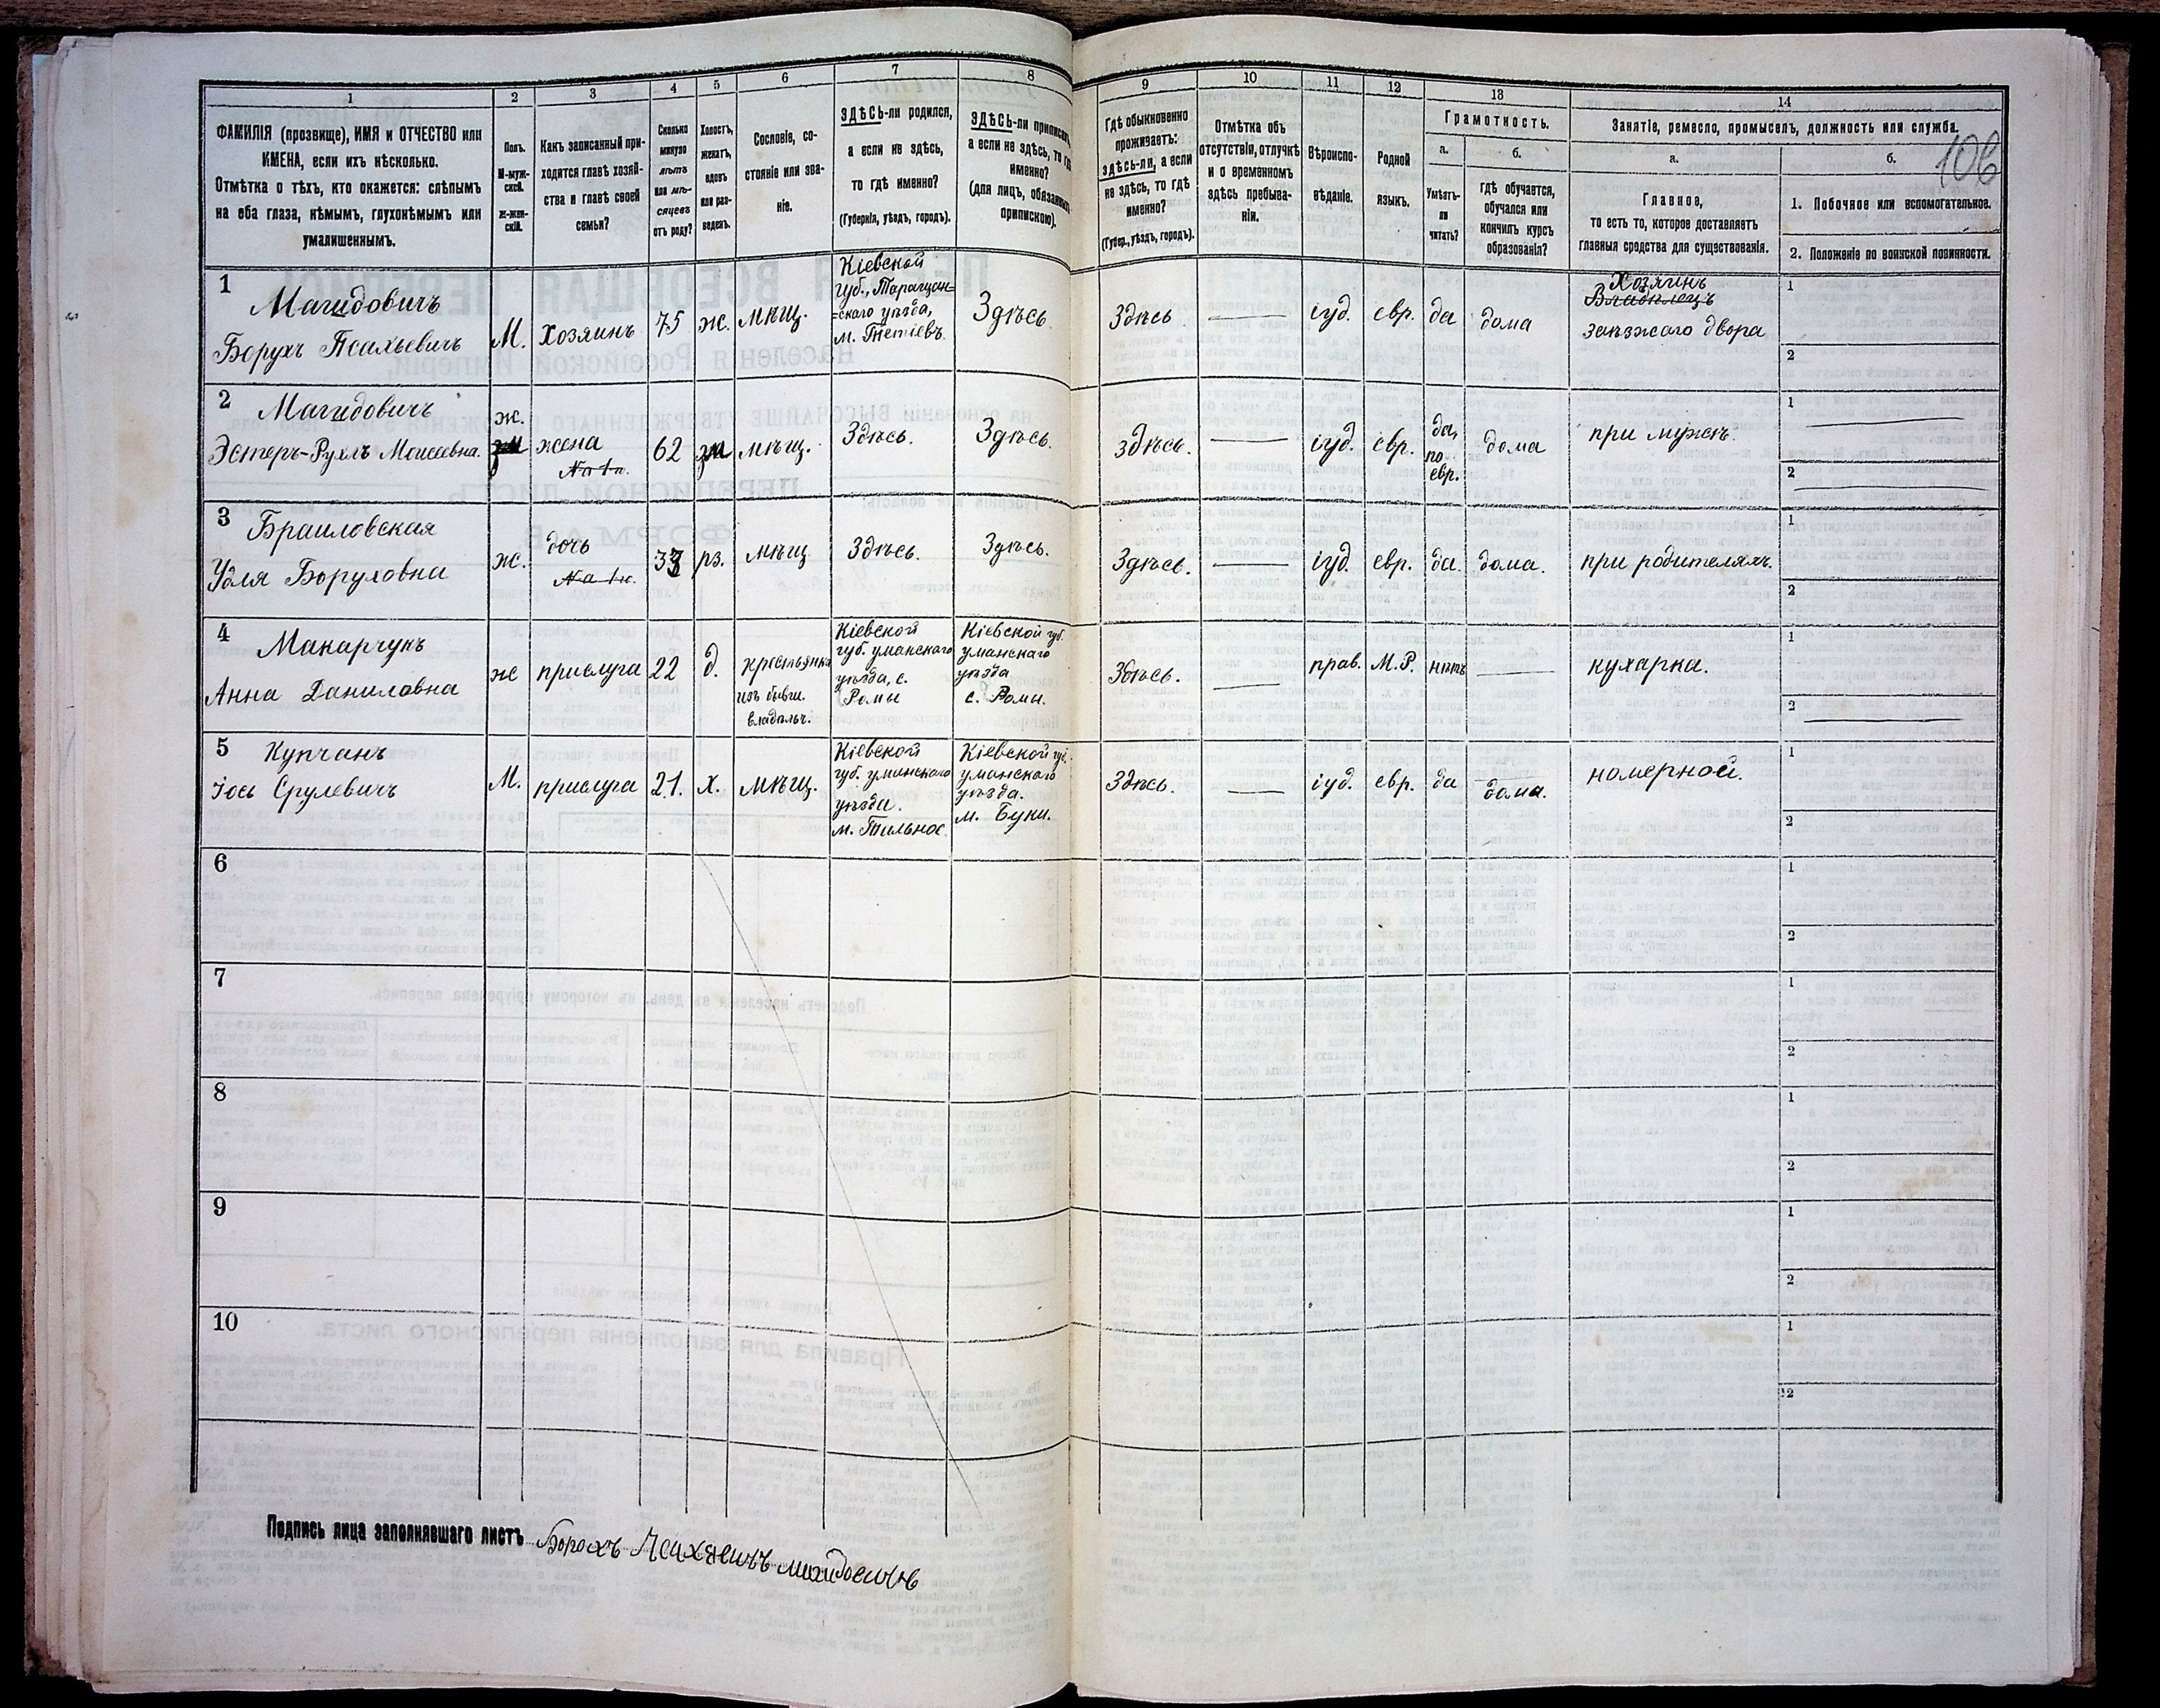 1
2
3
4
5
6
7
8
9
10
11
12
13
14
ФАМИЛІЯ (прозвище), ИМЯ и ОТЧЕСТВО или
ИМЕНА, если ихъ нѣсколько.
Отмѣтка о тѣхъ, кто окажется: слѣпымъ
на оба глаза, нѣмымъ, глухонѣмымъ или
умалишеннымъ.
Полъ.
М-муж-
ской.
Ж-жен-
скій.
Какъ записанный при-
ходятся главѣ хозяй-
ства и главѣ своей
семьи?
Сколько
минуло
лѣтъ
или мѣ-
сяцевъ
отъ роду?
Холостъ,
женатъ,
вдовъ
или раз-
веденъ.
Сословіе, со-
стояніе или зва-
ніе.
ЗДѢСЬ-ли родился,
а если не здѣсь,
то гдѣ именно?
(Губернія, уѣздъ, городъ).
ЗДѢСЬ-ли приписанъ,
а если не здѣсь, то гдѣ
именно?
(для лицъ, обязанныхъ
припискою).
Гдѣ обыкновенно
проживаетъ:
здѣсь-ли, а если
не здѣсь, то гдѣ
именно?
(Губер., уѣздъ, городъ).
Отмѣтка объ
отсутствіи, отлучкѣ
и о временномъ
здѣсь пребыва-
ніи.
Вѣроиспо-
вѣданіе.
Родной
языкъ.
Грамотность.
а.
Умѣетъ-
ли
читать?
б.
гдѣ обучается,
обучался или
кончилъ курсъ
образованія?
Занятіе, ремесло, промыселъ, должность или служба.
а.
Главное,
то есть то, которое доставляетъ
главныя средства для существованія.
б.
106
1. Побочное или вспомогательное.
2. Положеніе по воинской повинности.
1
Магидовичъ
Борухъ Псахьевичъ
М.
Хозяинъ
75
ж.
мѣщ.
Кіевской
губ., Таращан=
=скаго уѣзда,
м. Тетіевъ.
Здѣсь
Здѣсь
іуд.
евр.
да
дома
Хозяинъ
Владелецъ
заѣзжаго двора
1
2
2
Магидовичъ
Эстеръ-Рухлъ Моисеевна.
ж.
жена
№ 1й.
62
мѣщ.
Здѣсь.
Здѣсь.
Здѣсь.
іуд.
евр.
да,
по
евр.
дома
при мужѣ.
1
2
3
Браиловская
Удля Боруховна
ж.
дочь
№ 1й.
33
рз.
мѣщ
Здѣсь.
Здѣсь.
Здѣсь.
іуд.
евр.
да.
дома.
при родителяхъ.
1
2
4
Макарчукъ
Анна Даниловна
ж
прислуга
22
д.
крестьянка
изъ бывш.
владѣльч.
Кіевской
губ. уманскаго
уѣзда, с.
Ромы
Кіевской губ.
уманскаго
уѣзда
с. Ромы.
Здѣсь.
прав.
М.Р.
нѣтъ
кухарка.
1
2
5
Купчанъ
Іось Срулевичъ
М.
прислуга
21.
х.
мѣщ.
Кіевской
губ. уманскаго
уѣзда.
м. Тальное
Кіевской губ.
уманскаго
уѣзда.
м. Буки.
Здѣсь.
іуд.
евр.
да
дома.
номерной.
1
2
6
1
2
7
1
2
8
1
2
9
1
2
10
1
2
Подпись лица заполнявшаго листъ